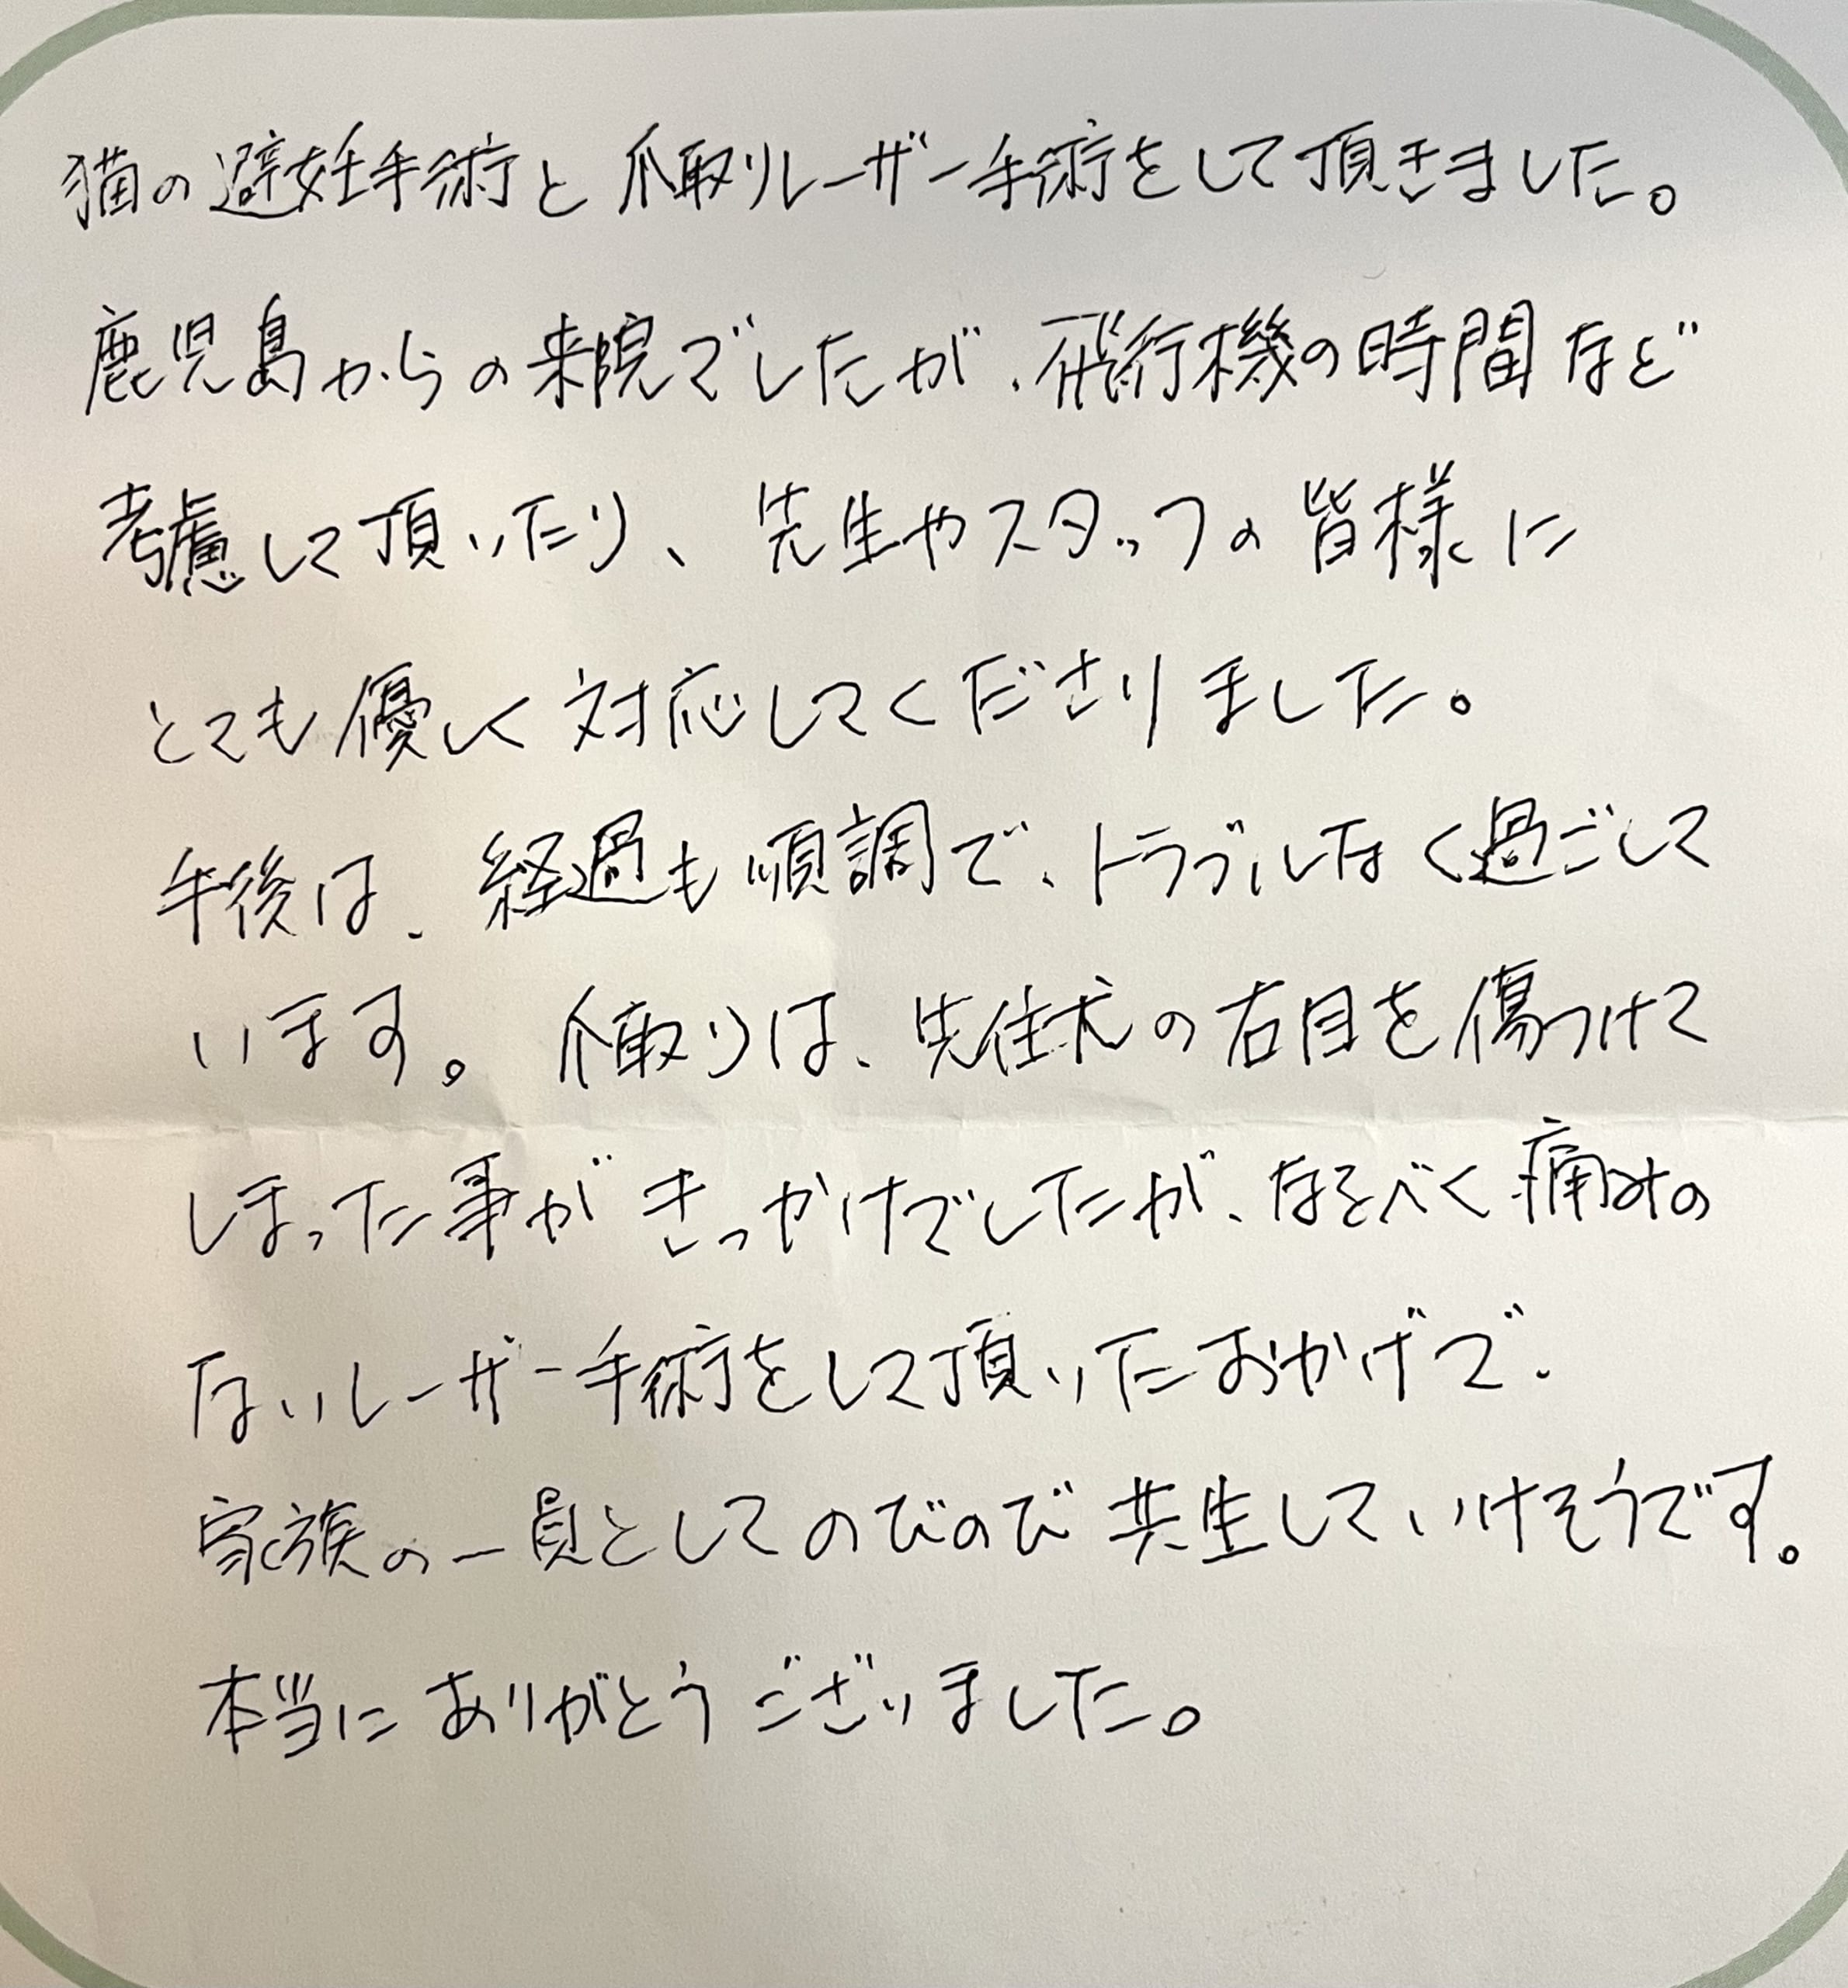 猫の避妊手術と爪取りレーザー手術をして頂きました。
鹿児島からの来院でしたが、飛行機の時間など
考慮して頂いたり、先生やスタッフの皆様に
とても優しく対応してくださりました。
午後は、経過も順調で、トラブルなく過ごして
います。爪取りは、先住犬の右目を傷つけて
しまった事がきっかけでしたが、なるべく痛みの
ないレーザー手術をして頂いたおかげで、
家族の一員としてのびのび共生していけそうです。
本当にありがとうございました。